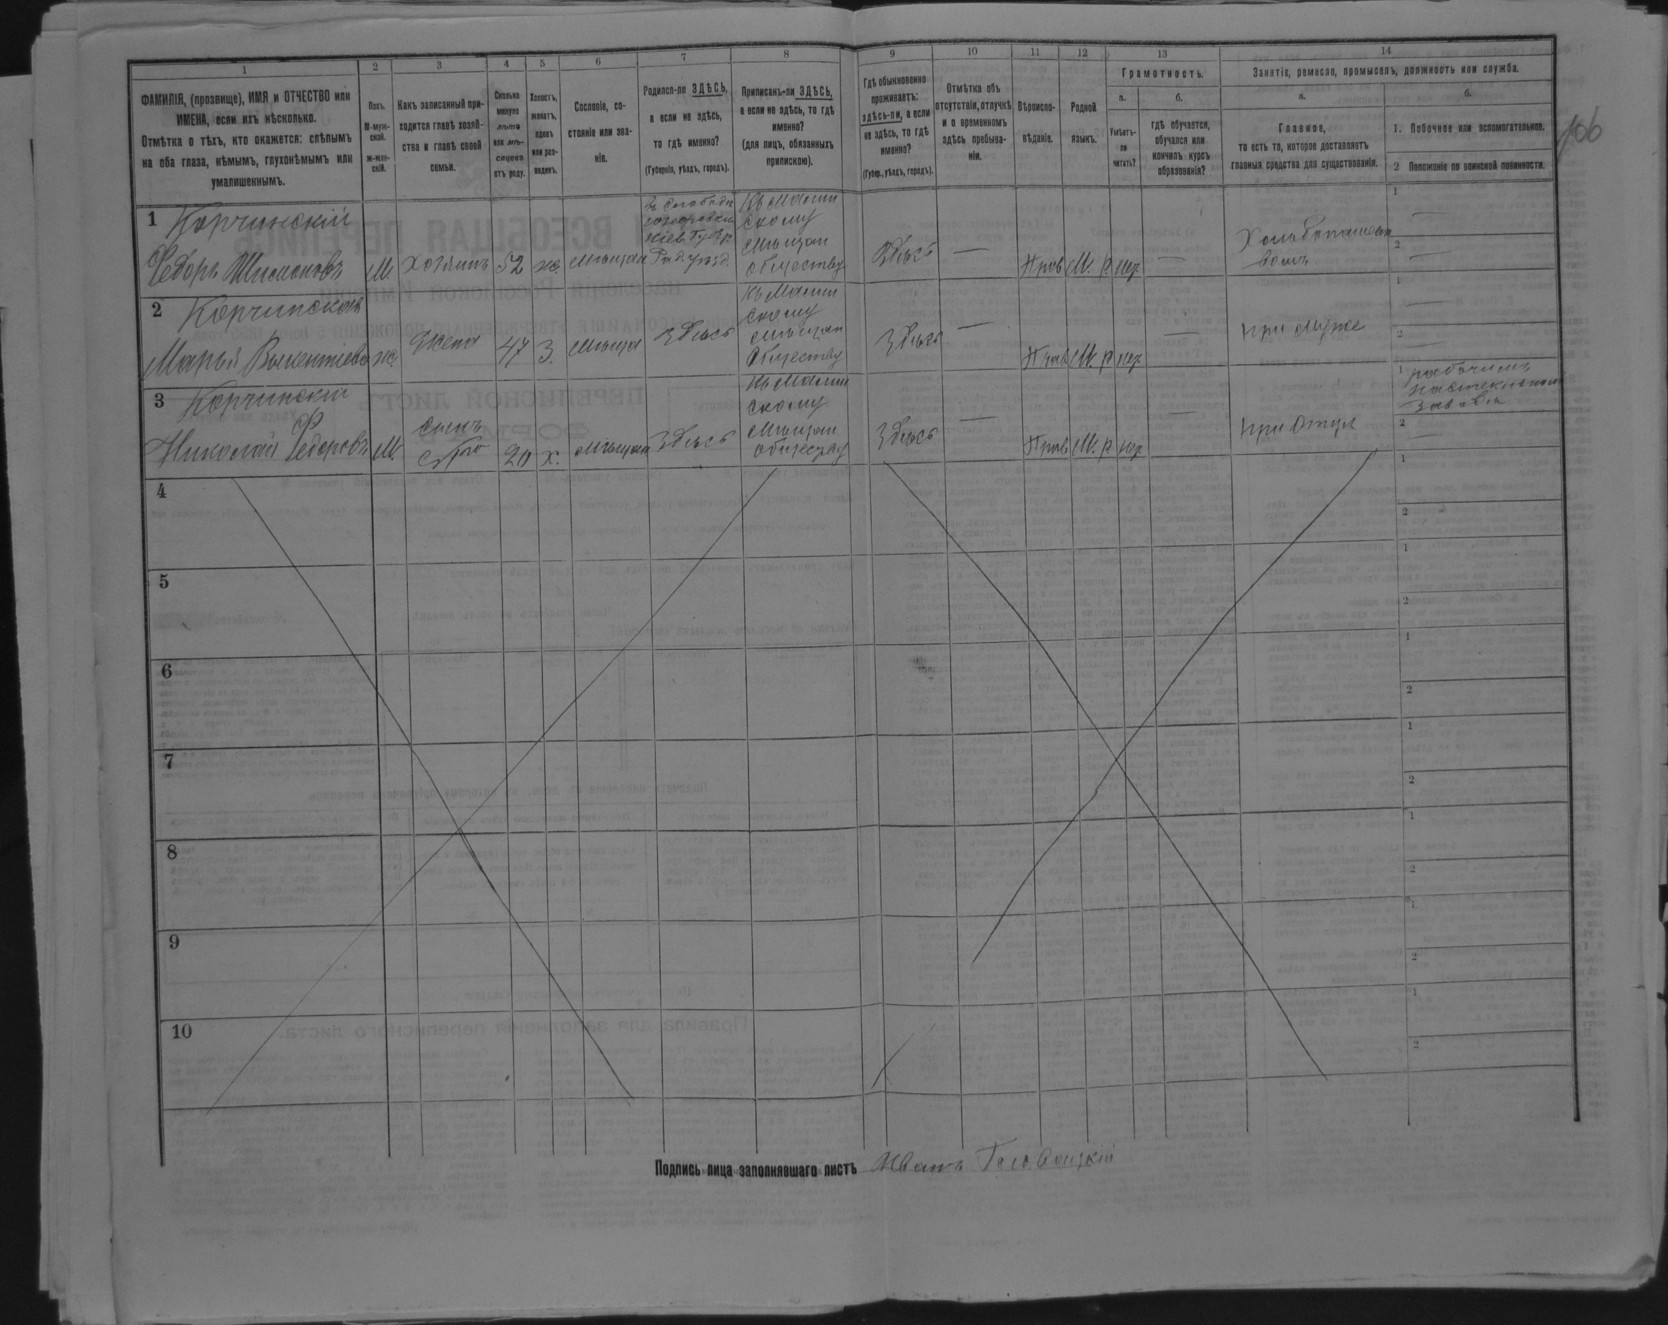 1
2
3
4
5
6
7
8
9
10
11
12
13
14
ФАМИЛІЯ, (прозвище), ИМЯ и ОТЧЕСТВО или
ИМЕНА, если ихъ нѣсколько.
Отмѣтка о тѣхъ, кто окажется: слѣпымъ
на оба глаза, нѣмымъ, глухонѣмымъ или
умалишеннымъ.
Полъ.
М-муж-
ской.
ж-жен-
скій.
Какъ записанный при-
ходится главѣ хозяй-
ства и главѣ своей
семьи.
Сколько
минуло
лѣтъ
или мѣ-
сяцевъ
отъ роду.
Холостъ,
женатъ,
вдовъ
или раз-
веденъ.
Сословіе, со-
стояніе или зва-
ніе.
Родился-ли ЗДѢСЬ,
а если не здѣсь,
то гдѣ именно?
(Губернія, уѣздъ, городъ).
Приписанъ-ли ЗДѢСЬ,
а если не здѣсь, то гдѣ
именно?
(для лицъ, обязанныхъ
припискою).
Гдѣ обыкновенно
проживаетъ:
здѣсь-ли, а если
не здѣсь, то гдѣ
именно?
(Губер., уѣздъ, городъ).
Отмѣтка объ
отсутствіи, отлучкѣ
и о временномъ
здѣсь пребыва-
ніи.
Вѣроиспо-
вѣданіе.
Родной
языкъ.
Грамотность.
а.
б.
Умѣетъ-
ли
читать?
гдѣ обучается,
обучался или
кончилъ курсъ
образованія?
Занятіе, ремесло, промыселъ, должность или служба.
а.
б.
Главное,
то есть то, которое доставляетъ
главныя средства для существованія.
1. Побочное или вспомогательное.
2 Положеніе по воинской повинности.
106
1 Корчинскій
Федоръ
М
хозяинъ
52
ж.
мѣщан
Кіев Губ
Къ Малин
скому
мѣщан
обществу
Здѣсь
—
Прав
М. р
нет
—
1
—
2
—
2 Корчинская
Марья
ж.
Жена
47
З.
мѣщан
Здѣсь
Къ Малин
скому
мѣщан
Обществу
Здѣсь
—
Прав
М. р
нет
—
при мужѣ
1
—
2
—
3 Корчинскій
Николай Федоровъ
М
сынъ
его
20
х.
мѣщан
Здѣсь
Къ Малин
скому
мѣщан
обществу
Здѣсь
—
Прав
М. р
нет
—
при Отцѣ
1 рабочимъ
2
—
4
1
2
5
1
2
6
1
2
7
1
2
8
1
2
9
1
2
10
1
2
Подпись лица заполнявшаго листъ Иванъ